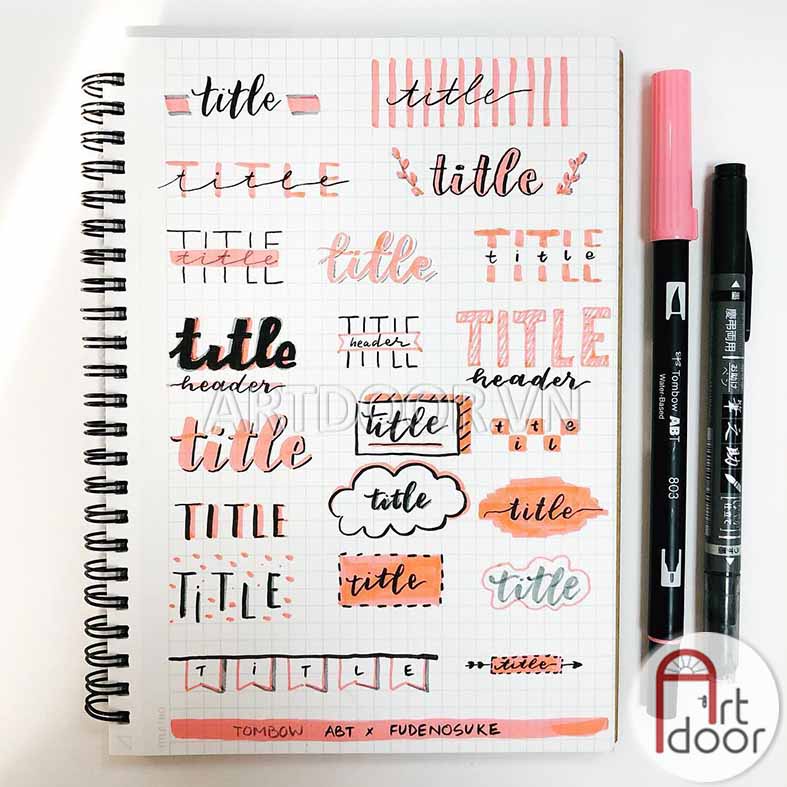 title title
TITLE title title
TITLE title title TITLE title
title TITLE header TITLE
header header
ARTDOOR.VN
title title title
TITLE title title
TITLE title title
TITLE title
TOMBOW ABT x FUDENOSUKE
Tombow ABT
Water-Based
803
慶弔両用
筆之助
Art
door